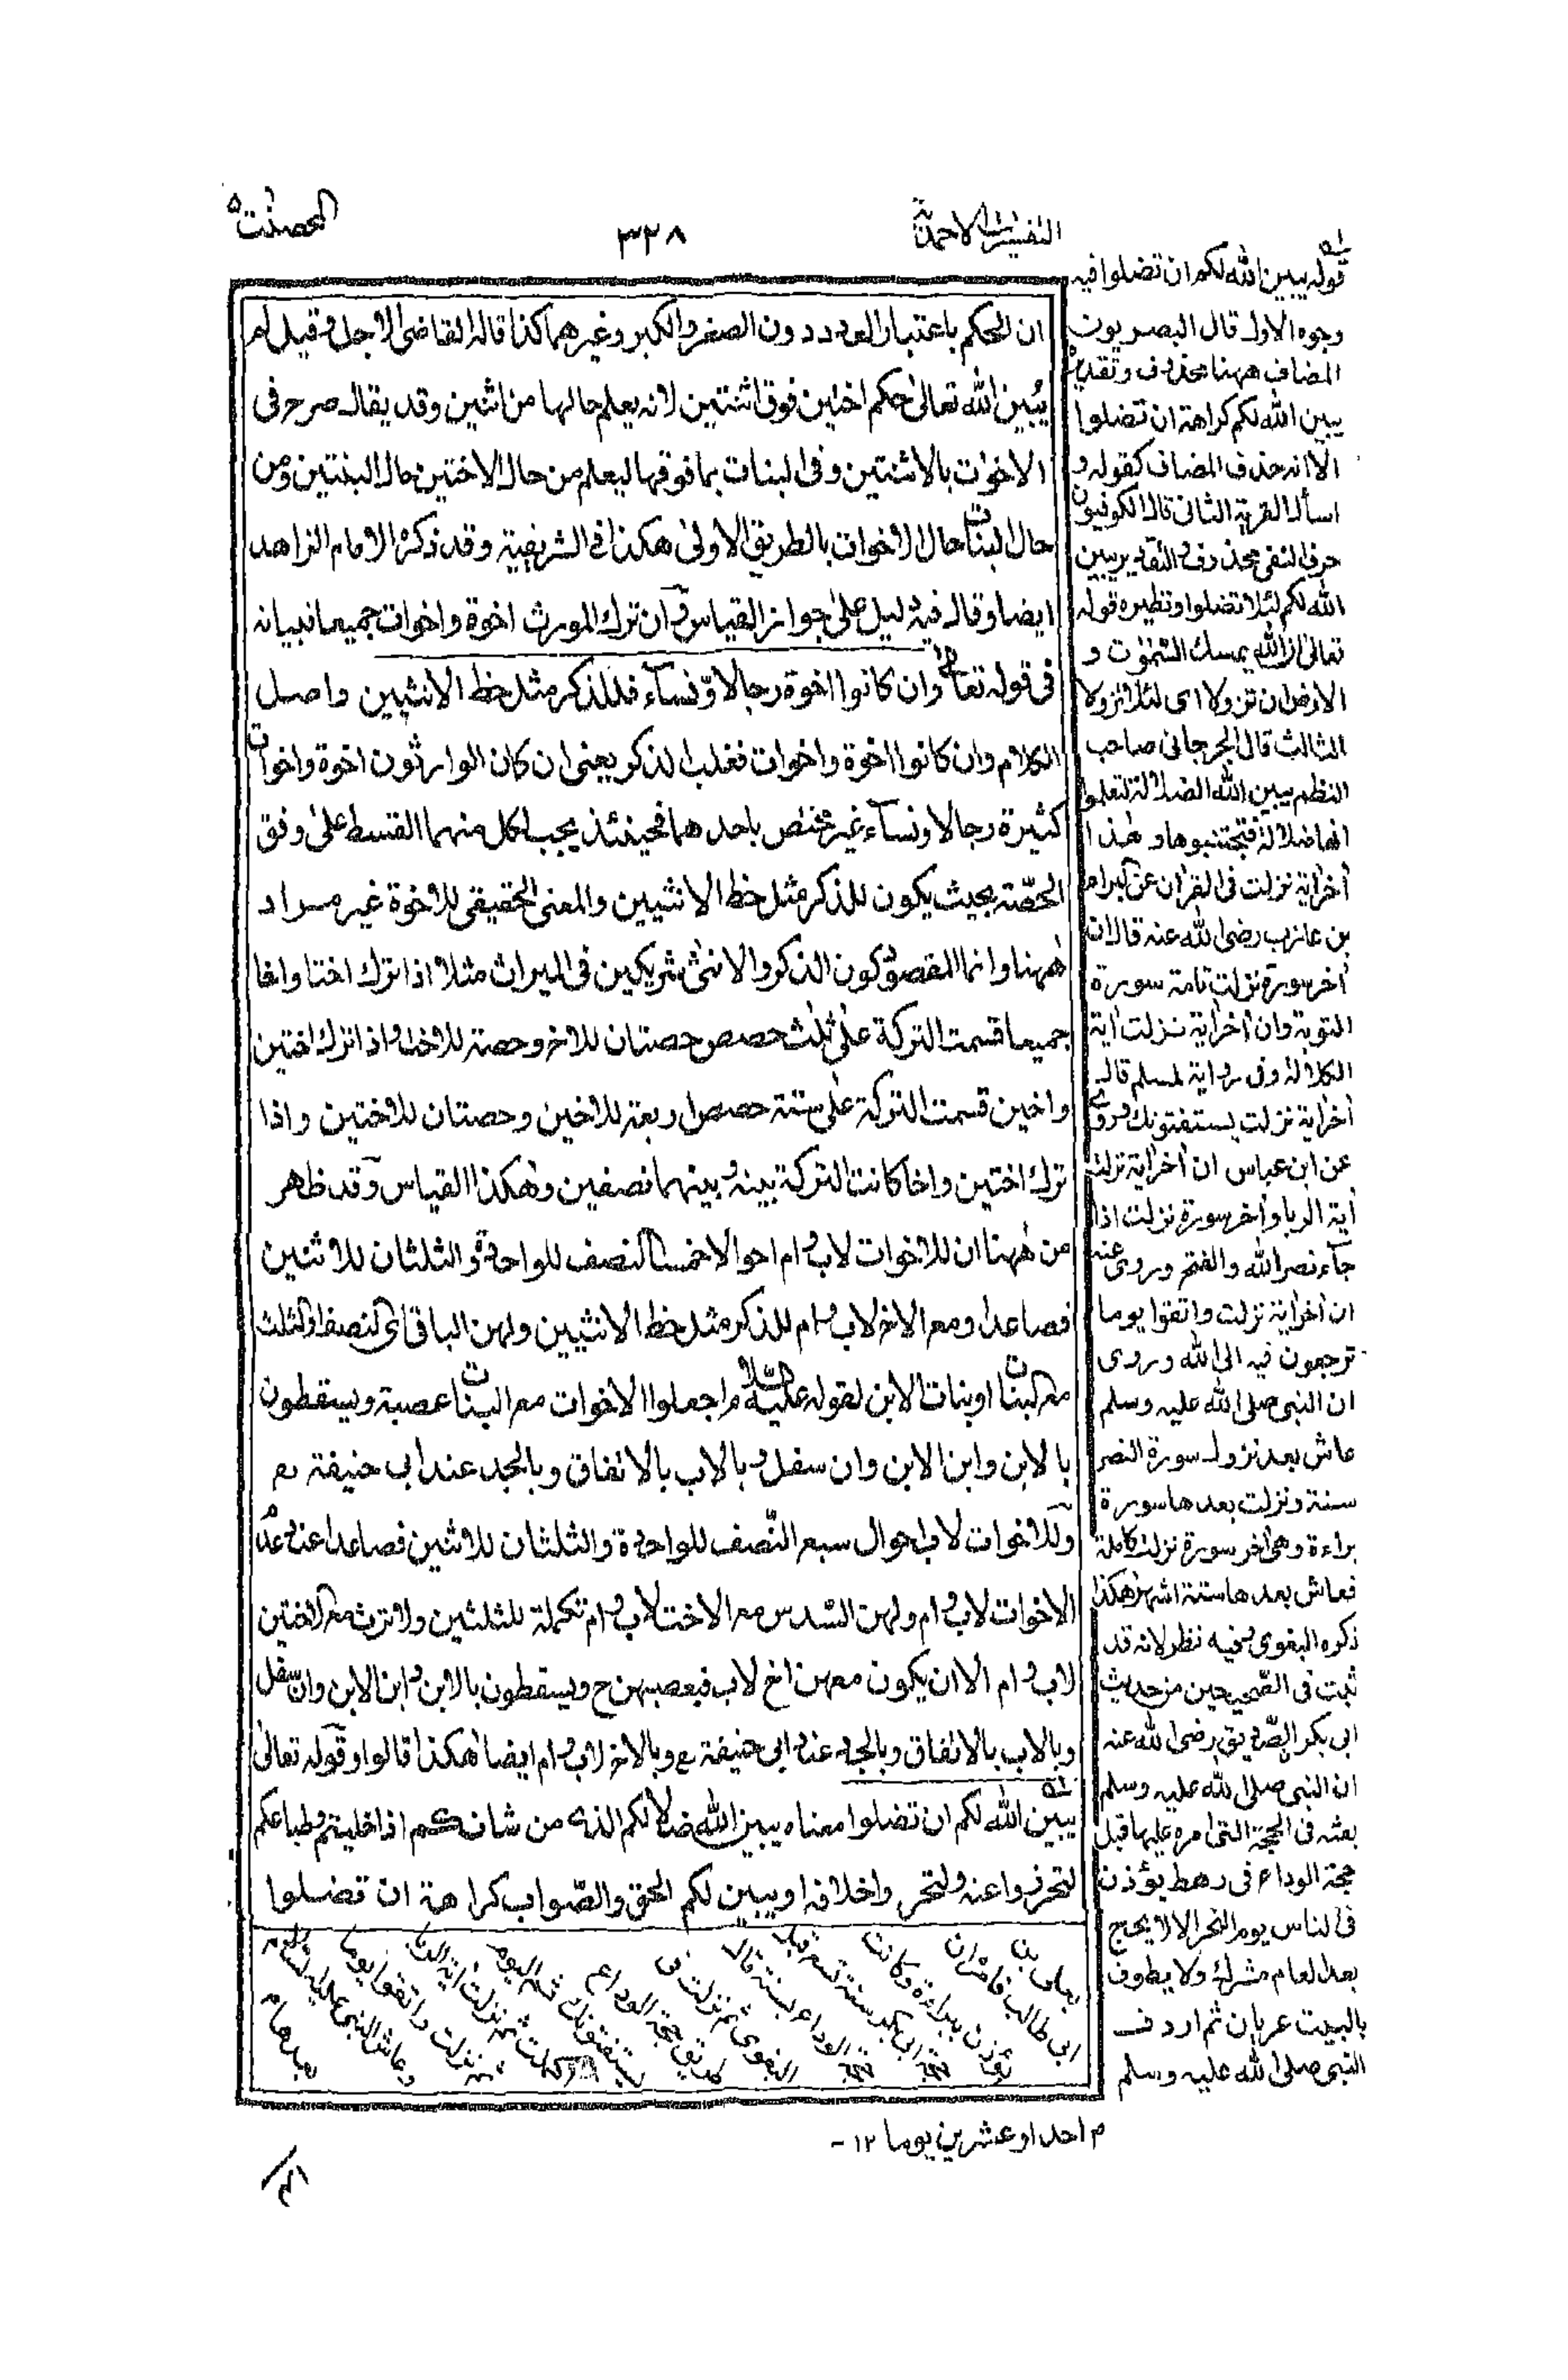 التفسيرات الاحمدية
٣٢٨
المحصنت ٥
ان الحكم باعتبار العدد دون الصغر والكبر وغيرهما كذا قاله القاضى الاجل وقيل لم
يبين الله تعالى حكم اختين فوق اثنتين لانه يعلم حالها من اثنين وقد يقال صرح فى
الاخوات بالاثنتين وفى البنات بما فوقها ليعلم من حال الاختين حال البنتين ومن
حال البنات حال الاخوات بالطريق الاولى هكذا فى الشريفية وقد ذكره الامام الزاهد
ايضا وقال فيه دليل على جواز القياس وان ترك المورث اخوة واخوات جميعا فبيانه
فى قوله تعالى وان كانوا اخوة رجالا ونسآء فللذكر مثل حظ الانثيين واصل
الكلام وان كانوا اخوة واخوات فغلب الذكر يعنى ان كان الوارثون اخوة واخوات
كثيرة رجالا ونسآء غير مختص باحدهما فحينئذ يجب لكل منهما القسط على وفق
الحصّة بحيث يكون للذكر مثل حظ الانثيين والمعنى الحقيقى للاخوة غير مراد
ههنا وانما المقصود كون الذكر والانثى شريكين فى الميراث مثلا اذا ترك اختا واخا
جميعا قسمت التركة على ثلث حصص حصتان للاخ وحصة للاخت واذا ترك اختين
واخين قسمت التركة على ستة حصص اربعة للاخين وحصتان للاختين واذا
ترك اختين واخا كانت التركة بينه وبينهما نصفين وهكذا القياس وقد ظهر
من ههنا ان للاخوات لاب وام احوالا خمسا النصف للواحدة والثلثان للاثنين
فصاعدا ومع الاخ لاب وام للذكر مثل حظ الانثيين ولهن الباقى اى النصف او الثلث
مع البنات او بنات الابن لقوله عليه السلام اجعلوا الاخوات مع البنات عصبة ويسقطون
بالابن وابن الابن وان سفل وبالاب بالاتفاق وبالجد عند ابى حنيفة رح
وللاخوات لاب احوال سبع النّصف للواحدة والثلثان للاثنين فصاعدا عند عدم
الاخوات لاب وام ولهن السّدس مع الاخت لاب وام تكملة للثلثين ولا ترث مع الاختين
لاب وام الا ان يكون معهن اخ لاب فيعصبهن ح ويسقطون بالابن وابن الابن وان سفل
وبالاب بالاتفاق وبالجد عند ابى حنيفة رح وبالاخ لاب وام ايضا هكذا قالوا وقوله تعالى
يبين الله لكم ان تضلوا معناه يبين الله ضلالكم الذى من شانكم اذا خليتم وطباعكم
لتحرزوا عنه وتتحروا خلافه او يبين لكم الحق والصّواب كراهة ان تضلوا
قوله يبين الله لكم ان تضلوا فيه
وجوه الاول قال البصريون
المضاف ههنا محذوف وتقديره
يبين الله لكم كراهة ان تضلوا
الا انه حذف المضاف كقوله و
اسأل القرية الثانى قال الكوفيون
حرف النفى محذوف والتقدير يبين
الله لكم لئلا تضلوا ونظيره قوله
تعالى ان الله يمسك السموت و
الارض ان تزولا اى لئلا تزولا
الثالث قال الجرجانى صاحب
النظم يبين الله الضلالة لتعلموا
انها ضلالة فتجتنبوها وهذا
اخر اية نزلت فى القران عن البراء
بن عازب رضى الله عنه قال ان
اخر سورة نزلت تامة سورة
التوبة وان اخر اية نزلت اية
الكلالة وفى رواية لمسلم قال
اخر اية نزلت يستفتونك وروى
عن ابن عباس ان اخر اية نزلت
اية الربا واخر سورة نزلت اذا
جآء نصر الله والفتح وروى عنه
ان اخر اية نزلت واتقوا يوما
ترجعون فيه الى الله وروى
ان النبى صلى الله عليه وسلم
عاش بعد نزول سورة النصر
سنة ونزلت بعدها سورة
براءة وهى اخر سورة نزلت كاملة
فعاش بعدها ستة اشهر هكذا
ذكره البغوى وفيه نظر لانه قد
ثبت فى الصّحيحين من حديث
ابى بكر الصّديق رضى الله عنه
ان النبى صلى الله عليه وسلم
بعثه فى الحجة التى امره عليها قبل
حجة الوداع فى رهط يؤذن
فى الناس يوم النحر الا لا يحج
بعد العام مشرك ولا يطوف
بالبيت عريان ثم اردف
النبى صلى الله عليه وسلم
بعلى بن
ابى طالب فامره ان
يؤذن ببراءة وكانت
حجة ابى بكر سنة تسع قبل
حجة الوداع بسنة قال
البغوى ثم نزلت فى
طريق حجة الوداع
يستفتونك ثم نزل اليوم
اكملت ثم نزلت اية الربا
ثم نزلت واتقوا يوما
وعاش النبى عليه السلام
بعدها م
م احد او عشرين يوما ١٢-